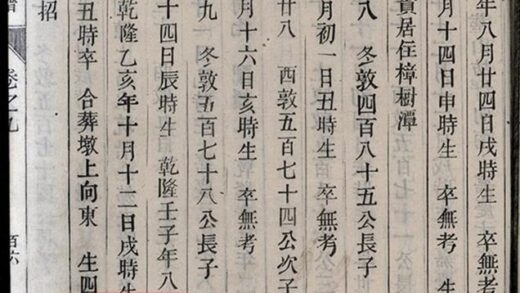 年八月廿四日戌時生 卒無考
月十四日申時生 卒無考 生
貢居住樟樹潭
八 冬敦四百八十五公長子
月初一日丑時生 卒無考
廿八 西敦五百七十四公次子
月十六日亥時生 卒無考
九 冬敦五百七十八公長子
十四日辰時生 乾隆壬子年八
乾隆乙亥年十月十二日戌時生
丑時卒 合葬墩上向東 生四
招
譜 卷之九 百六